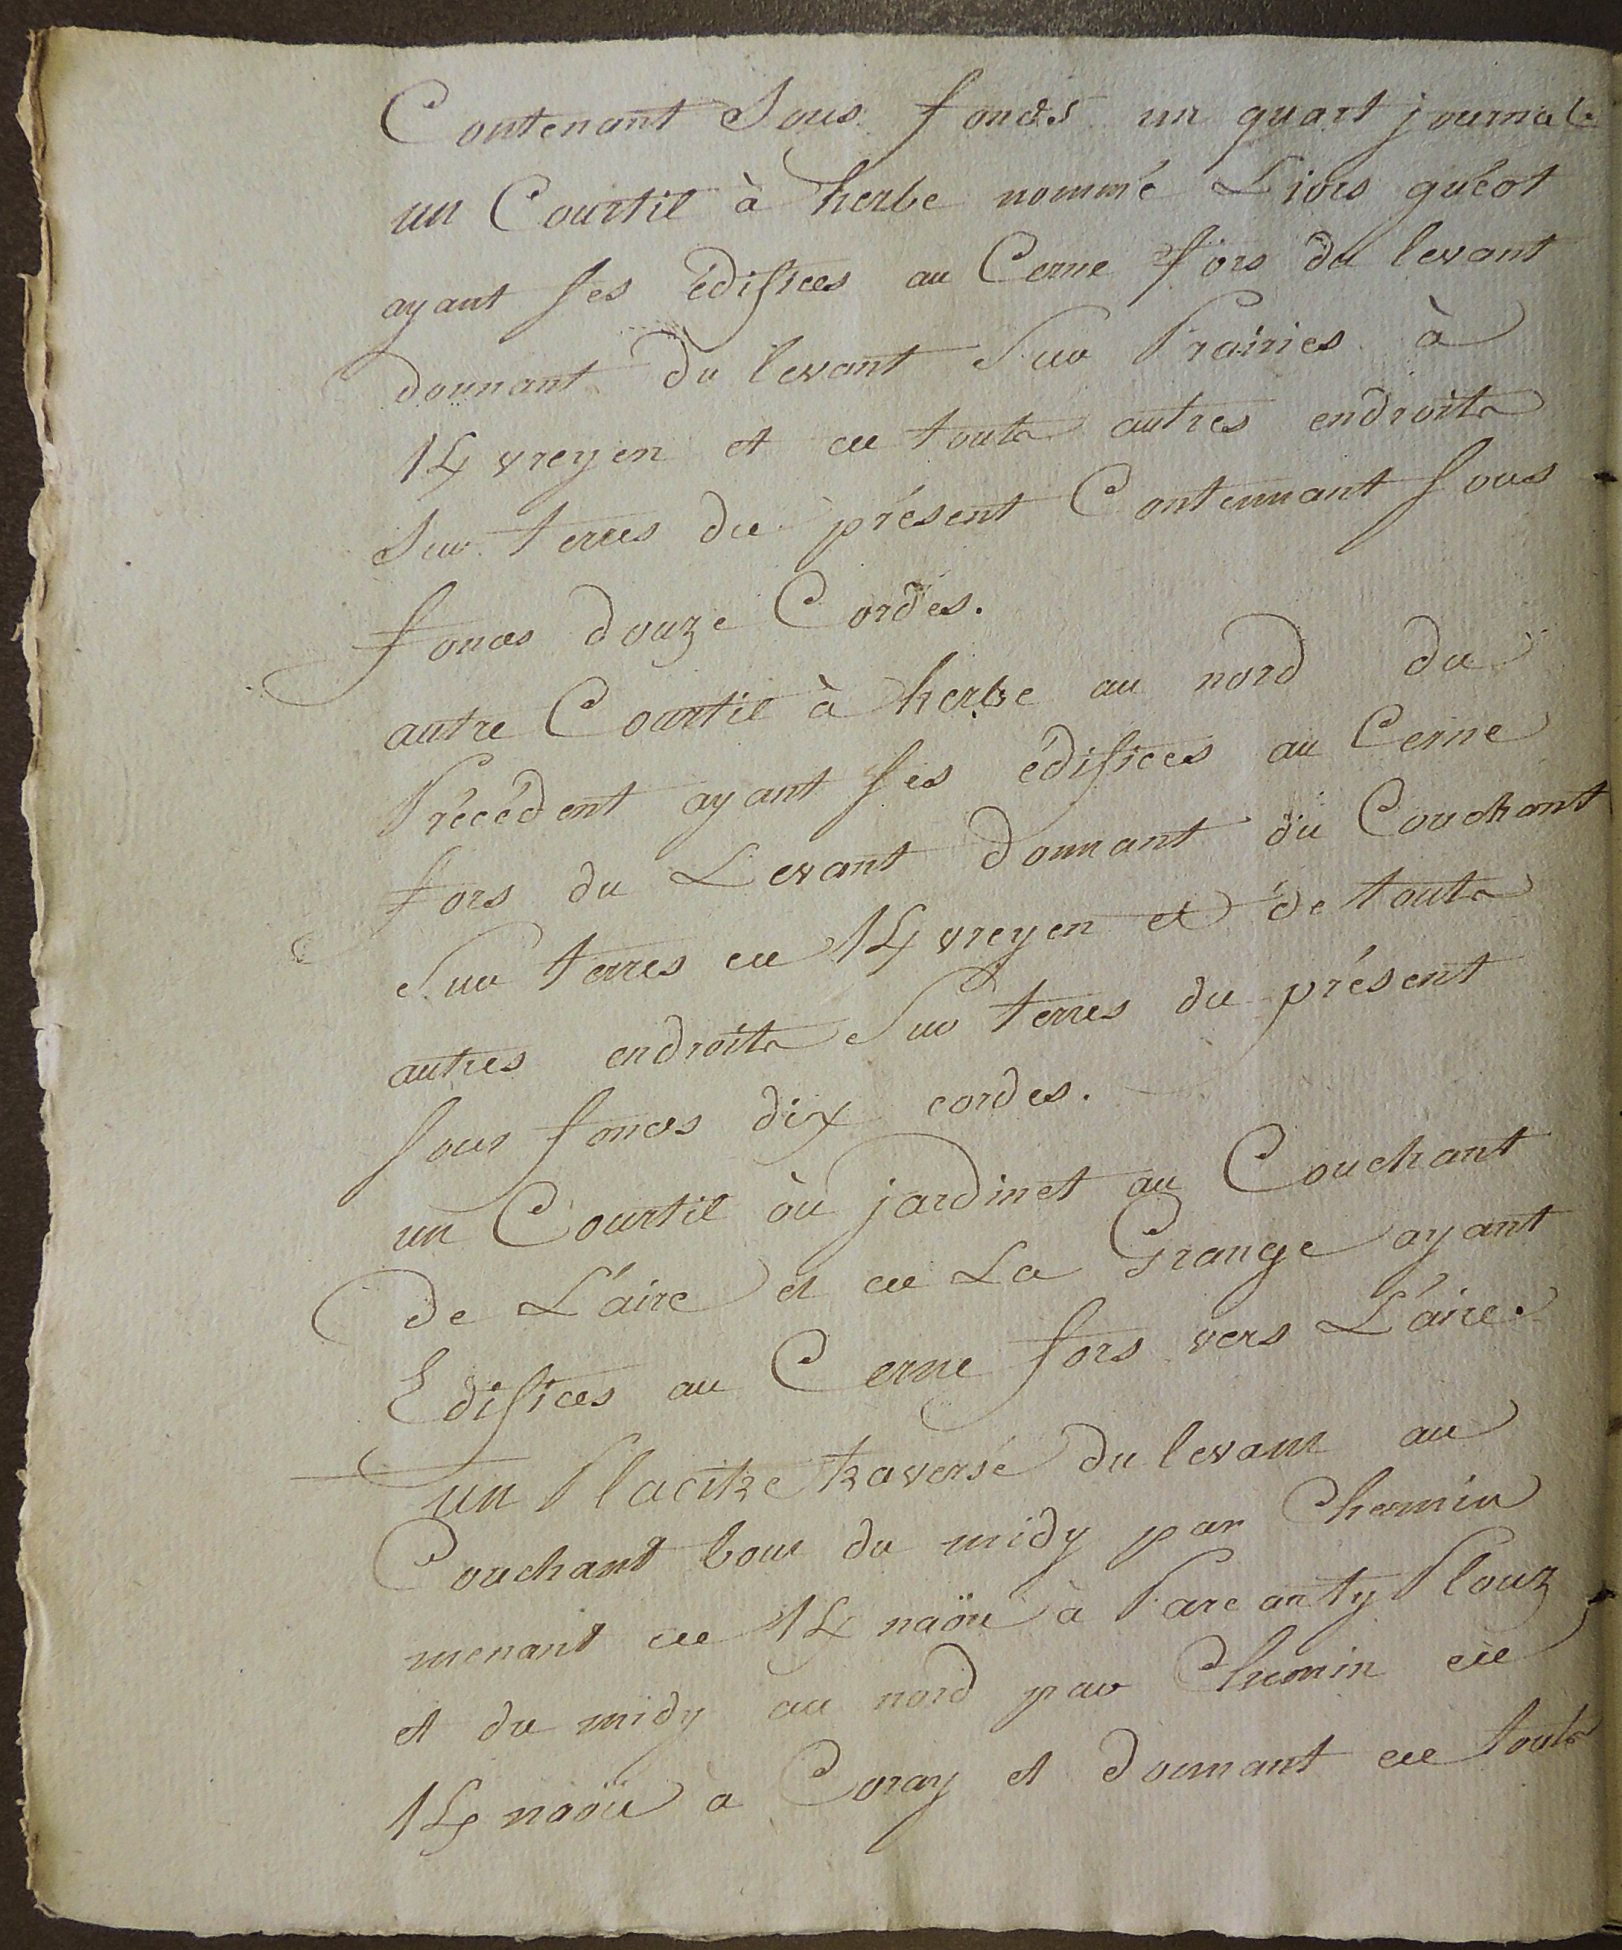 Contenant Sous fonds un quart journal
un Courtil à herbe nommé Liors guéot
ayant ses édifices au Cerne fors du levant
donnant du levant Sur Prairies à
Kvreyen et de touts autres endroits
Sur terres du présent Contennant sous
fonds douze Cordes.
autre Courtil à herbe au nord du
Précédent ayant ses édifices au Cerne
fors du Levant donnant du Couchant
Sur terres de Kvreyen et de touts
autres endroits Sur terres du présent
sous fonds dix cordes.
un Courtil où jardinet au Couchant
de L'aire et de La Grange ayant
Edifices au Cerne fors vers L'aire.
un Placitre traversé du levant au
Couchant bout du midy par Chemin
menant de K naöu à Parc an ty Plouz
et du midy au nord par Chemin de
K naöu à Coray et donnant de touts